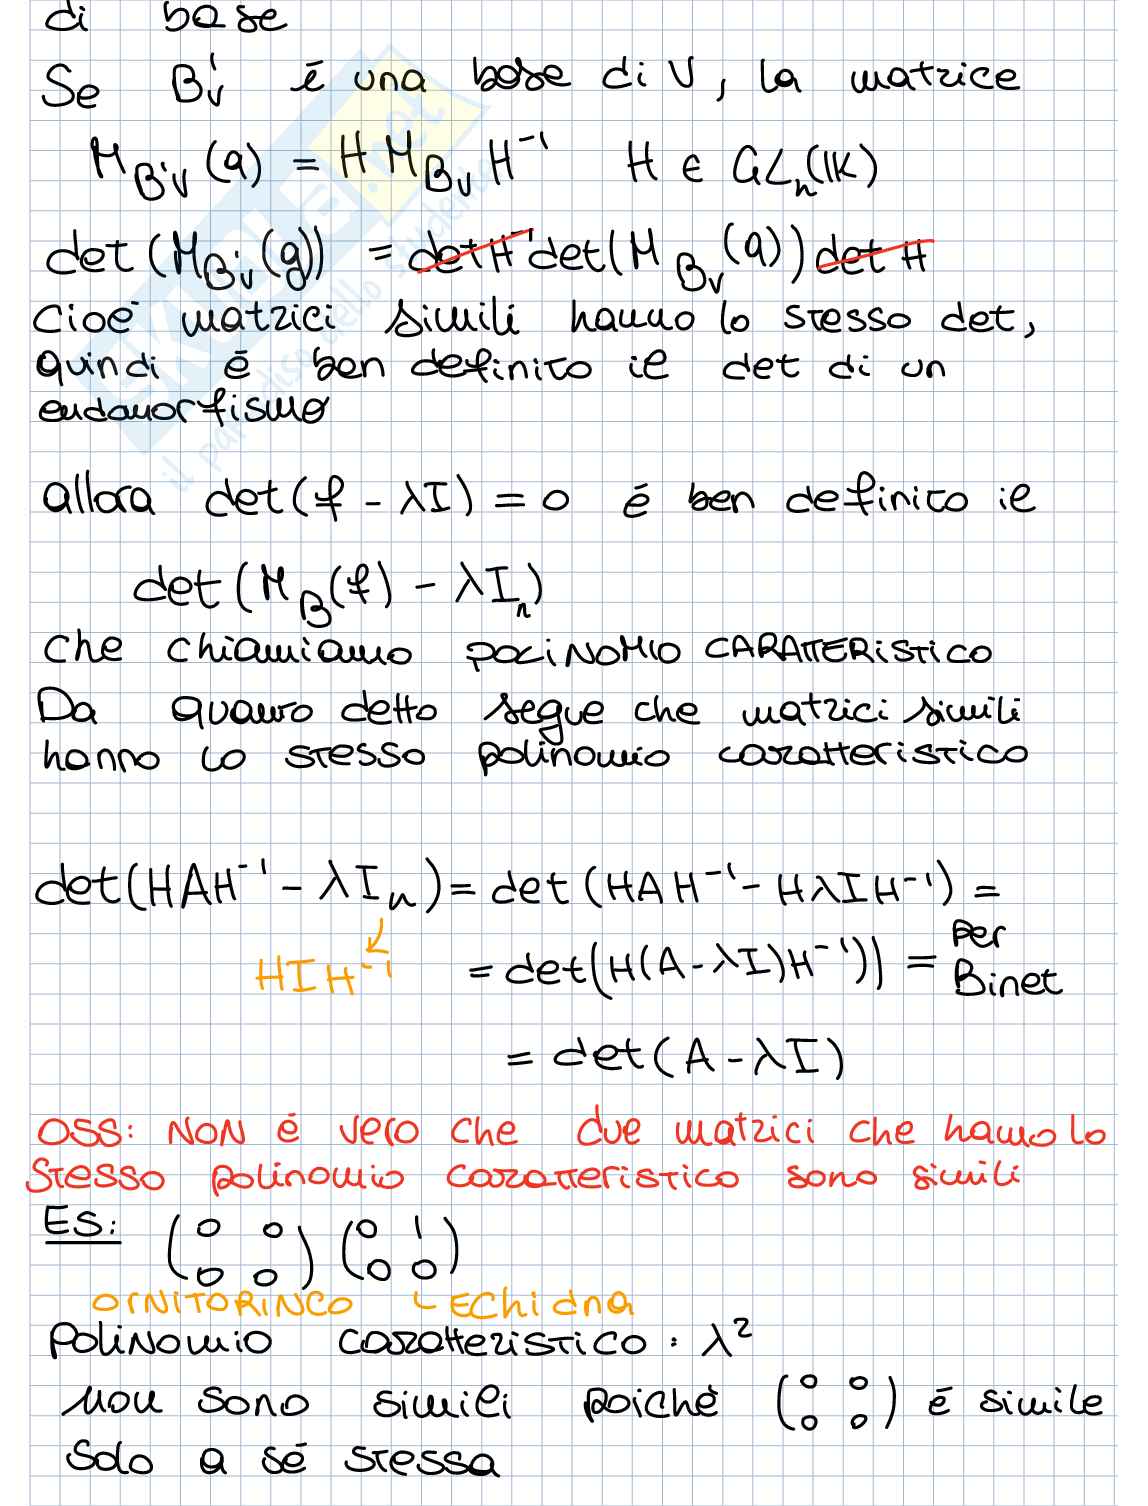 di base
Se B'v é una base di V, la matrice
M_{B'v}(a) = H M_{Bv} H⁻¹ H ∈ GLₙ(K)
det(M_{B'v}(g)) = det H⁻¹ det(M_{Bv}(a)) det H
Cioé matrici simili hanno lo stesso det,
quindi é ben definito il det di un
endomorfismo
allora det(f - λI) = 0 é ben definito il
det(M_B(f) - λIₙ)
che chiamiamo POLINOMIO CARATTERISTICO
Da quanto detto segue che matrici simili
hanno lo stesso polinomio caratteristico
det(HAH⁻¹ - λIₙ) = det(HAH⁻¹ - HλIH⁻¹) =
HIH⁻¹
= det(H(A-λI)H⁻¹)) = per Binet
= det(A - λI)
OSS: NON é vero che due matrici che hanno lo
stesso polinomio caratteristico sono simili
ES: (0 0 0 0) (0 1 0 0)
ORNITORINCO Echidna
Polinomio caratteristico: λ²
non sono simili poiché (0 0 0 0) é simile
solo a sé stessa
SKUOLA.net
il paradiso dello studente